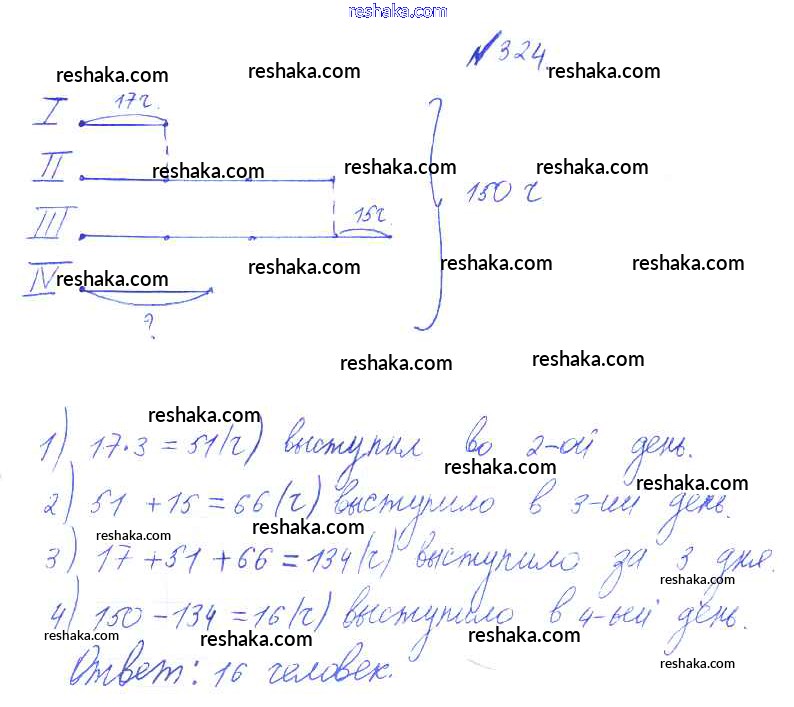 reshaka.com
№324.
reshaka.com reshaka.com reshaka.com
I 17ч.
II reshaka.com reshaka.com reshaka.com
150 ч
III 15ч.
reshaka.com reshaka.com reshaka.com
IV reshaka.com
?
reshaka.com reshaka.com
reshaka.com
1) 17·3=51(ч) выступил во 2-ой день.
reshaka.com reshaka.com
2) 51+15=66(ч) выступило в 3-ий день.
reshaka.com reshaka.com
3) 17+51+66=134(ч) выступило за 3 дня.
reshaka.com
4) 150-134=16(ч) выступило в 4-ый день.
reshaka.com reshaka.com reshaka.com
Ответ: 16 человек.
reshaka.com